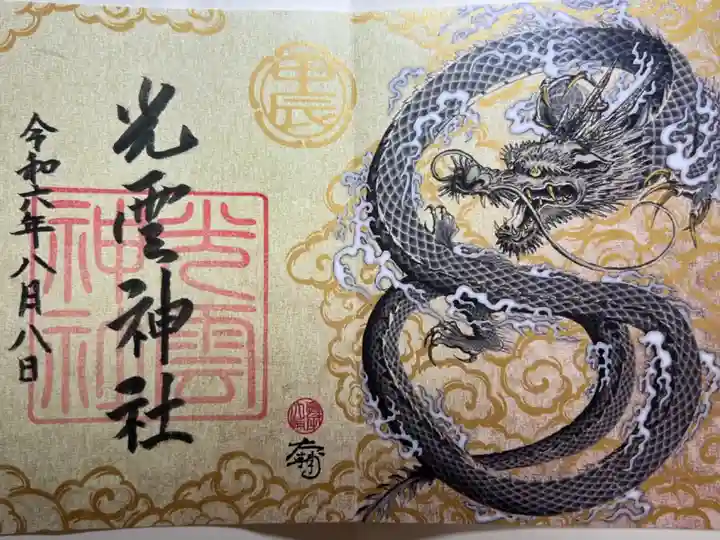 甲辰
光雲神社
令和六年八月八日
光雲
神社